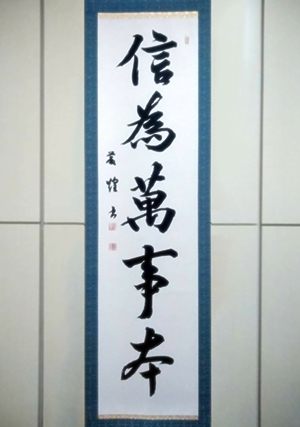 信為萬事本